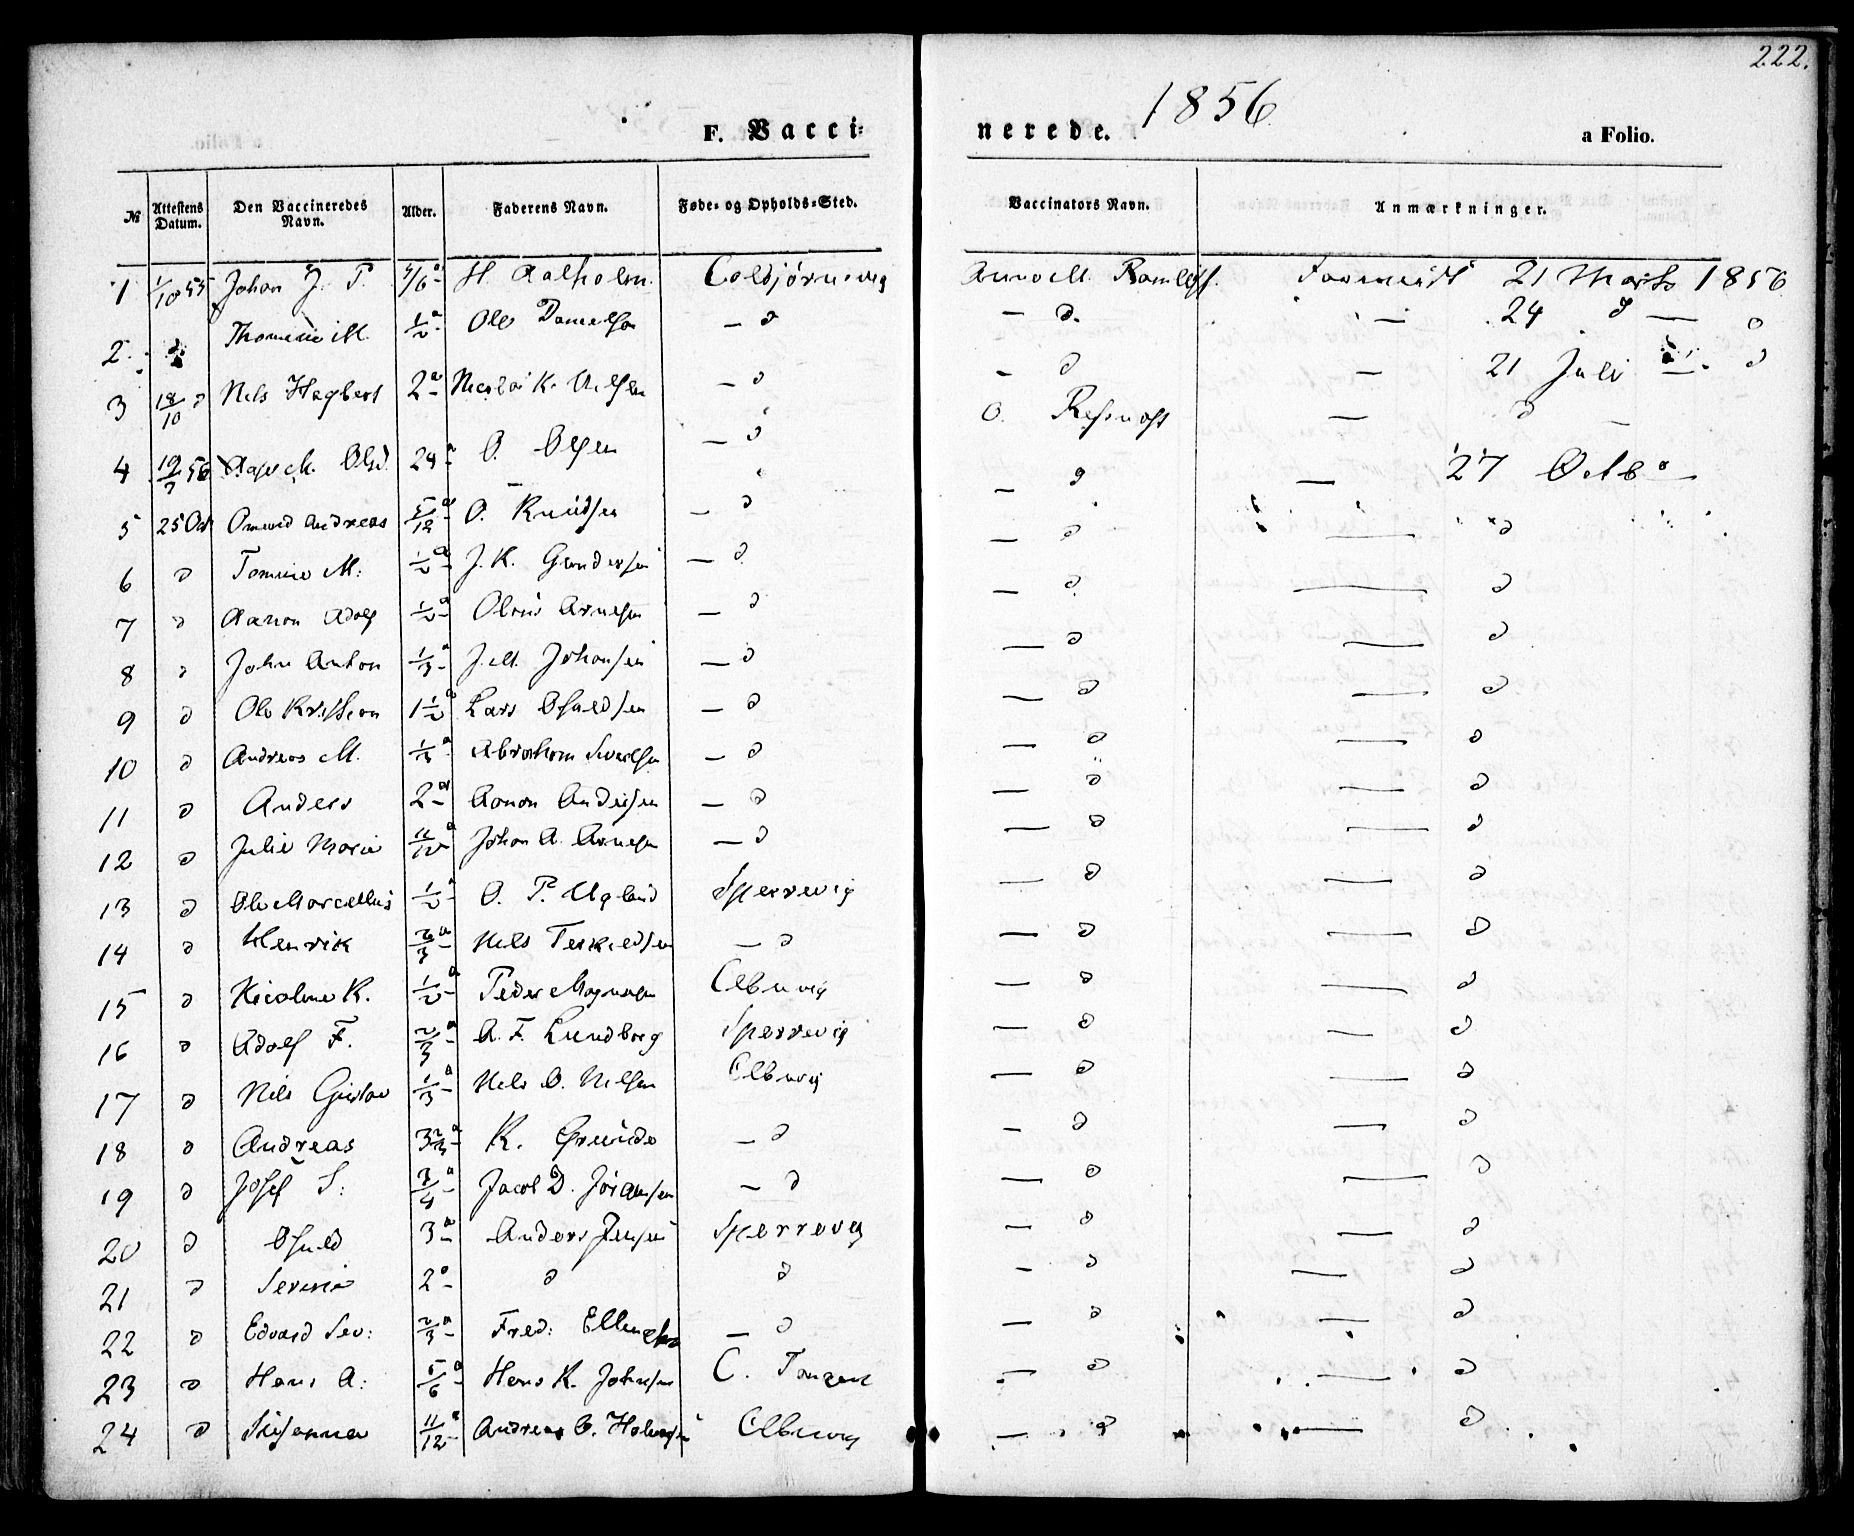 222.
F. Vacci-nerede. 1856 a Folio.
№ Attestens Datum. Den Vaccineredes Navn. Alder. Faderens Navn. Føde- og Opholds-Sted. Vaccinators Navn. Anmærkninger.
1 1/10 55 Johan J. P. H Aalholm 21 Marts 1856
2 Thomine M. 1/2 a Ole Danielsen — d — d. — 24 d — d
3 18/10 d Nils Hagbert 2 a Nicolai K. Nilsen — d — d — 21 Juli — d
4 19/7 56 O. Olsen — d O. — d
5 25 Oct Omund Andreas 5/12 a O. Knudsen — d — d — 27 Octb —
6 d Tomine M: 1/2 a J. K. Gundersen — d — d — d
7 d Aanon Adolf 1/2 a Olaus Arnesen — d — d — d
8 d John Anton 1/3 a J. M. Johansen — d — d — d
9 d Ole Kristian 1 1/2 a Lars Osuldsen — d — d — d
10 d Andreas M. 1/3 a Abraham — d — d — d
11 d Anders 2 a Aanon Andersen — d — d — d
12 d Julie Marie 11/12 a Johan A. Arnesen — d — d — d
13 d Ole Marcellius 1/2 a O. P. Ugland Sperrevig — d — d
14 d Henrik 2/3 a Nils Terkildsen — d — d — d
15 d Nicoline K. 1/2 a Peder Magnusen — d — d
16 d Adolf F. 2/3 a A. F. Lundborg Sperrevig — d — d
17 d Nils Gustav 1/3 a Nils O. Nilsen — d — d
18 d Andreas 3 2/3 a K. Grunde — d — d — d
19 d Josef S: 3/4 a Jacob D. Jörgensen — d — d — d
20 d Osuld 3 a Anders Jensen Sperrevig — d — d
21 d Serine 2 a d d — d — d
22 d Edvard Sev: 2/3 a Fred: — d — d — d
23 d Hans A: 5/6 a Hans K. Johnsen — d — d
24 d Susanna 11/12 a Andreas O. — d — d